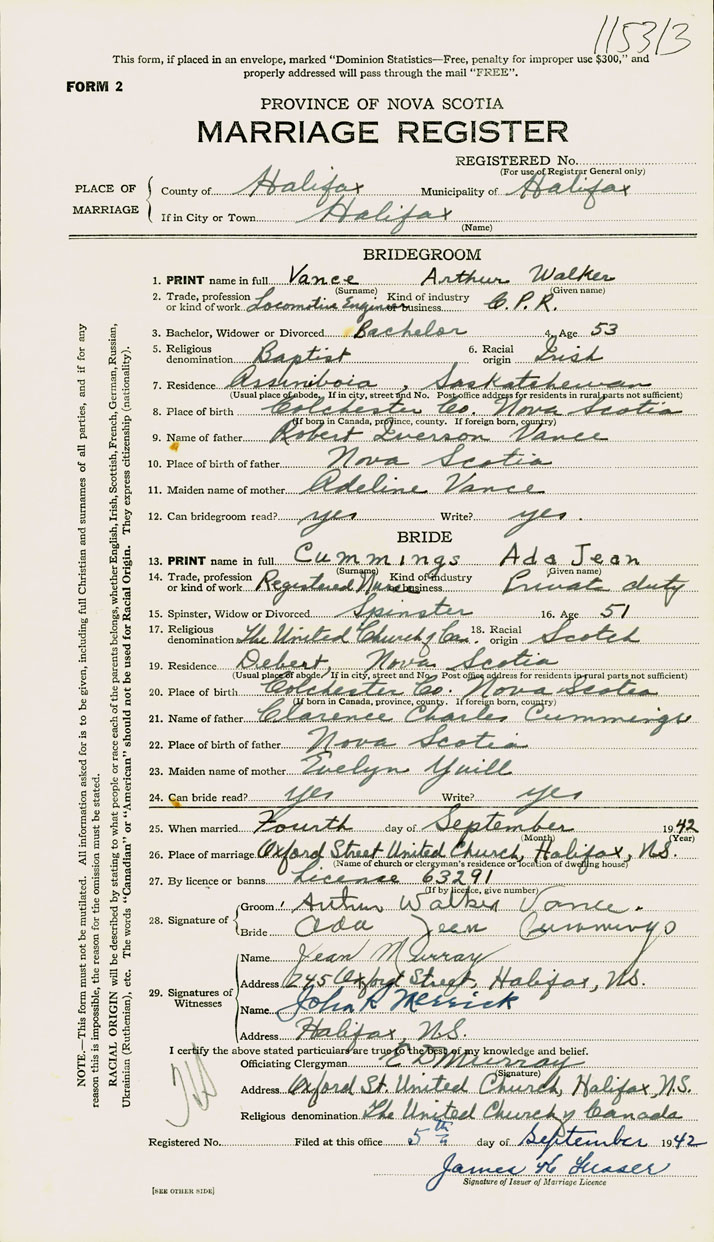 115313
This form, if placed in an envelope, marked "Dominion Statistics—Free, penalty for improper use $300," and
properly addressed will pass through the mail "FREE".
FORM 2
PROVINCE OF NOVA SCOTIA
MARRIAGE REGISTER
REGISTERED No.
(For use of Registrar General only)
PLACE OF MARRIAGE
County of Halifax Municipality of Halifax
If in City or Town Halifax
(Name)
BRIDEGROOM
1. PRINT name in full Vance Arthur Walker
(Surname) (Given name)
2. Trade, profession or kind of work Locomotive Engineer Kind of industry or business C.P.R.
3. Bachelor, Widower or Divorced Bachelor 4. Age 53
5. Religious denomination Baptist 6. Racial origin Irish
7. Residence Assiniboia, Saskatchewan
(Usual place of abode. If in city, street and No. Post office address for residents in rural parts not sufficient)
8. Place of birth Colchester Co. Nova Scotia
(If born in Canada, province, county. If foreign born, country)
9. Name of father Robert Iverson Vance
10. Place of birth of father Nova Scotia
11. Maiden name of mother Adeline Vance
12. Can bridegroom read? yes Write? yes.
BRIDE
13. PRINT name in full Cummings Ada Jean
(Surname) (Given name)
14. Trade, profession or kind of work Registered Nurse Kind of industry or business Private duty
15. Spinster, Widow or Divorced Spinster 16. Age 51
17. Religious denomination The United Church of Can. 18. Racial origin Scotch
19. Residence Debert, Nova Scotia
(Usual place of abode. If in city, street and No. Post office address for residents in rural parts not sufficient)
20. Place of birth Colchester Co. Nova Scotia
(If born in Canada, province, county. If foreign born, country)
21. Name of father Clarence Charles Cummings
22. Place of birth of father Nova Scotia
23. Maiden name of mother Evelyn Yuill
24. Can bride read? yes Write? yes
25. When married Fourth day of September 1942
(Month) (Year)
26. Place of marriage Oxford Street United Church, Halifax, N.S.
(Name of church or clergyman's residence or location of dwelling house)
27. By licence or banns License 63291
(If by licence, give number)
28. Signature of
Groom Arthur Walker Vance.
Bride Ada Jean Cummings
29. Signatures of Witnesses
Name Jean Murray
Address 245 Oxford Street, Halifax, N.S.
Name John R Merrick
Address Halifax, N.S.
I certify the above stated particulars are true to the best of my knowledge and belief.
Officiating Clergyman E D Murray
(Signature)
Address Oxford St. United Church, Halifax, N.S.
Religious denomination The United Church of Canada
Registered No. Filed at this office 5th day of September 1942
James H Fraser
Signature of Issuer of Marriage Licence
[SEE OTHER SIDE]
NOTE.—This form must not be mutilated. All information asked for is to be given, including full Christian and surnames of all parties, and if for any
reason this is impossible, the reason for the omission must be stated.
RACIAL ORIGIN will be described by stating to what people or race each of the parents belongs, whether English, Irish, Scottish, French, German, Russian,
Ukrainian (Ruthenian), etc. The words "Canadian" or "American" should not be used for Racial Origin. They express citizenship (nationality).